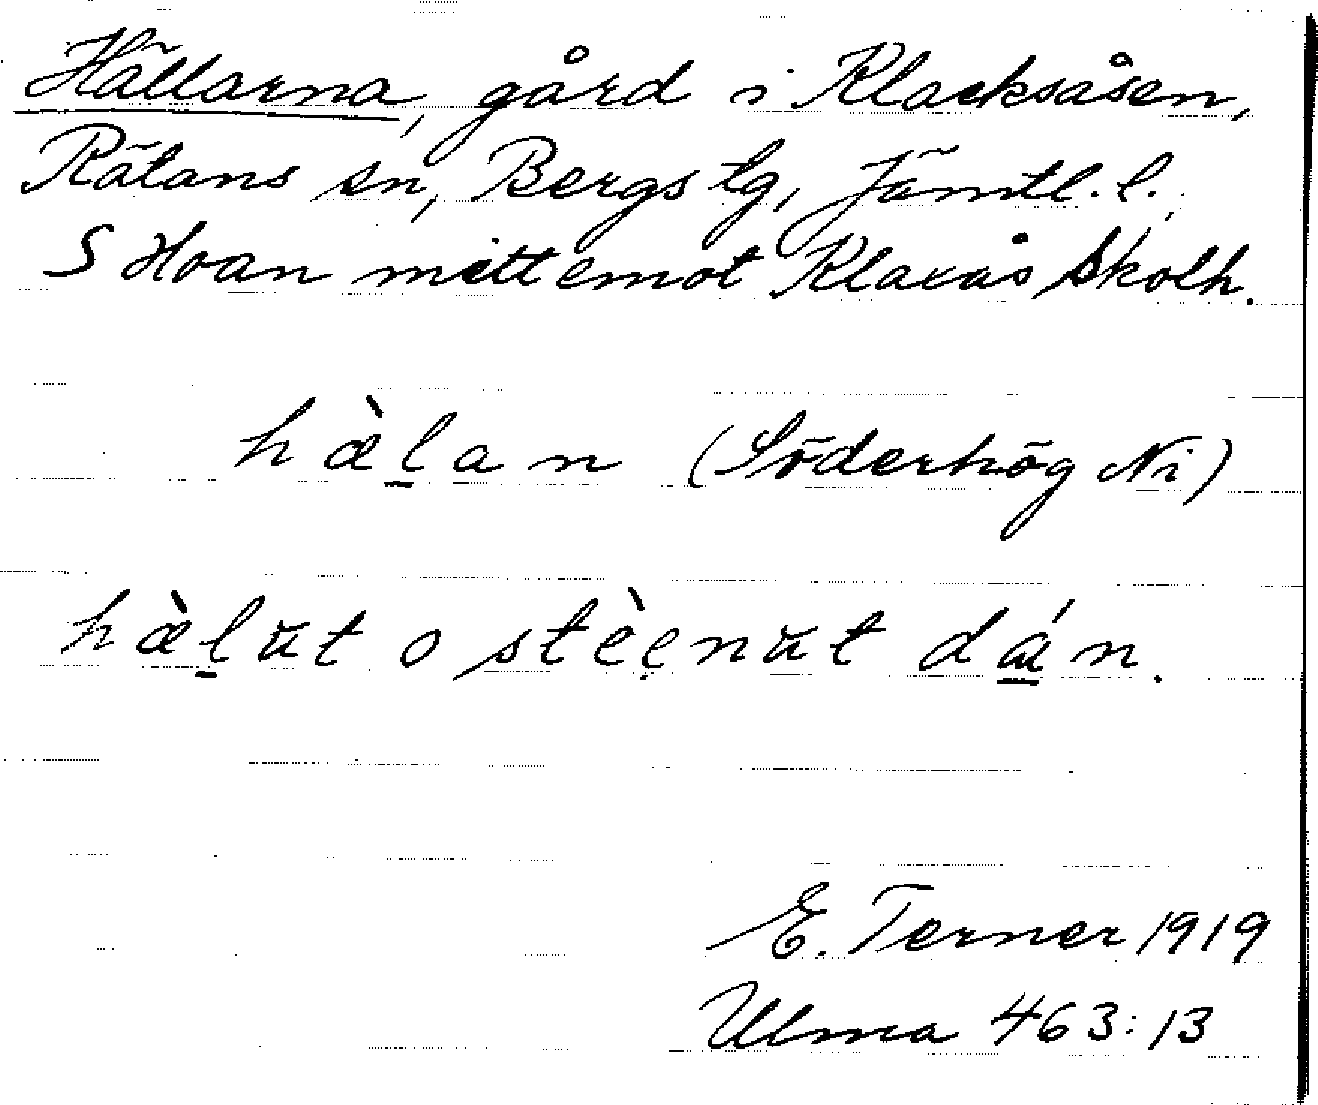 Hällarna, gård i Klacksåsen,
Rätans sn, Bergs tg, Jämtl. l.,
S Hoan mittemot Klaxås Skolh.
hæ̀l̠an (Söderhög Ni)
hæ̀l̠ut o stèẹnut dá̠n.
E. Terner 1919
Ulma 463:13